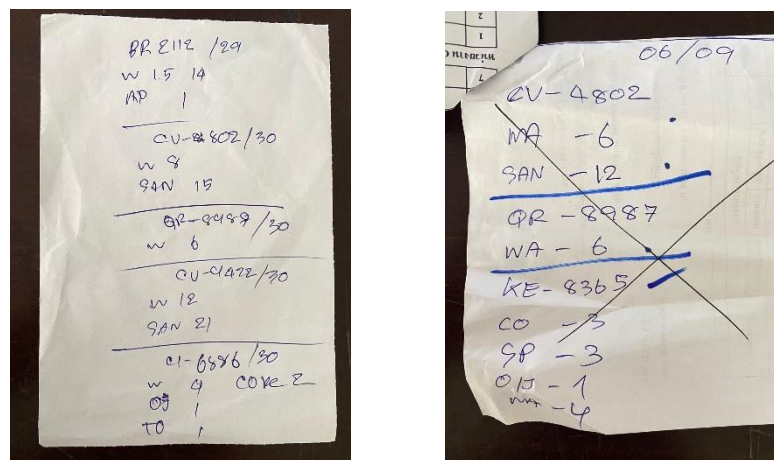 BR 2112 /29
W 1.5 14
AP 1
CU-4802/30
W 8
SAN 15
QR-8987/30
W 6
CU-9422/30
W 12
SAN 21
CI-6886/30
W 9 COKE 2
OJ 1
TO 1
2
1
7
06/09
CU-4802
WA -6
SAN -12
QR-8987
WA - 6
KE-8365
CO -3
SP -3
OJ -1
WA -4